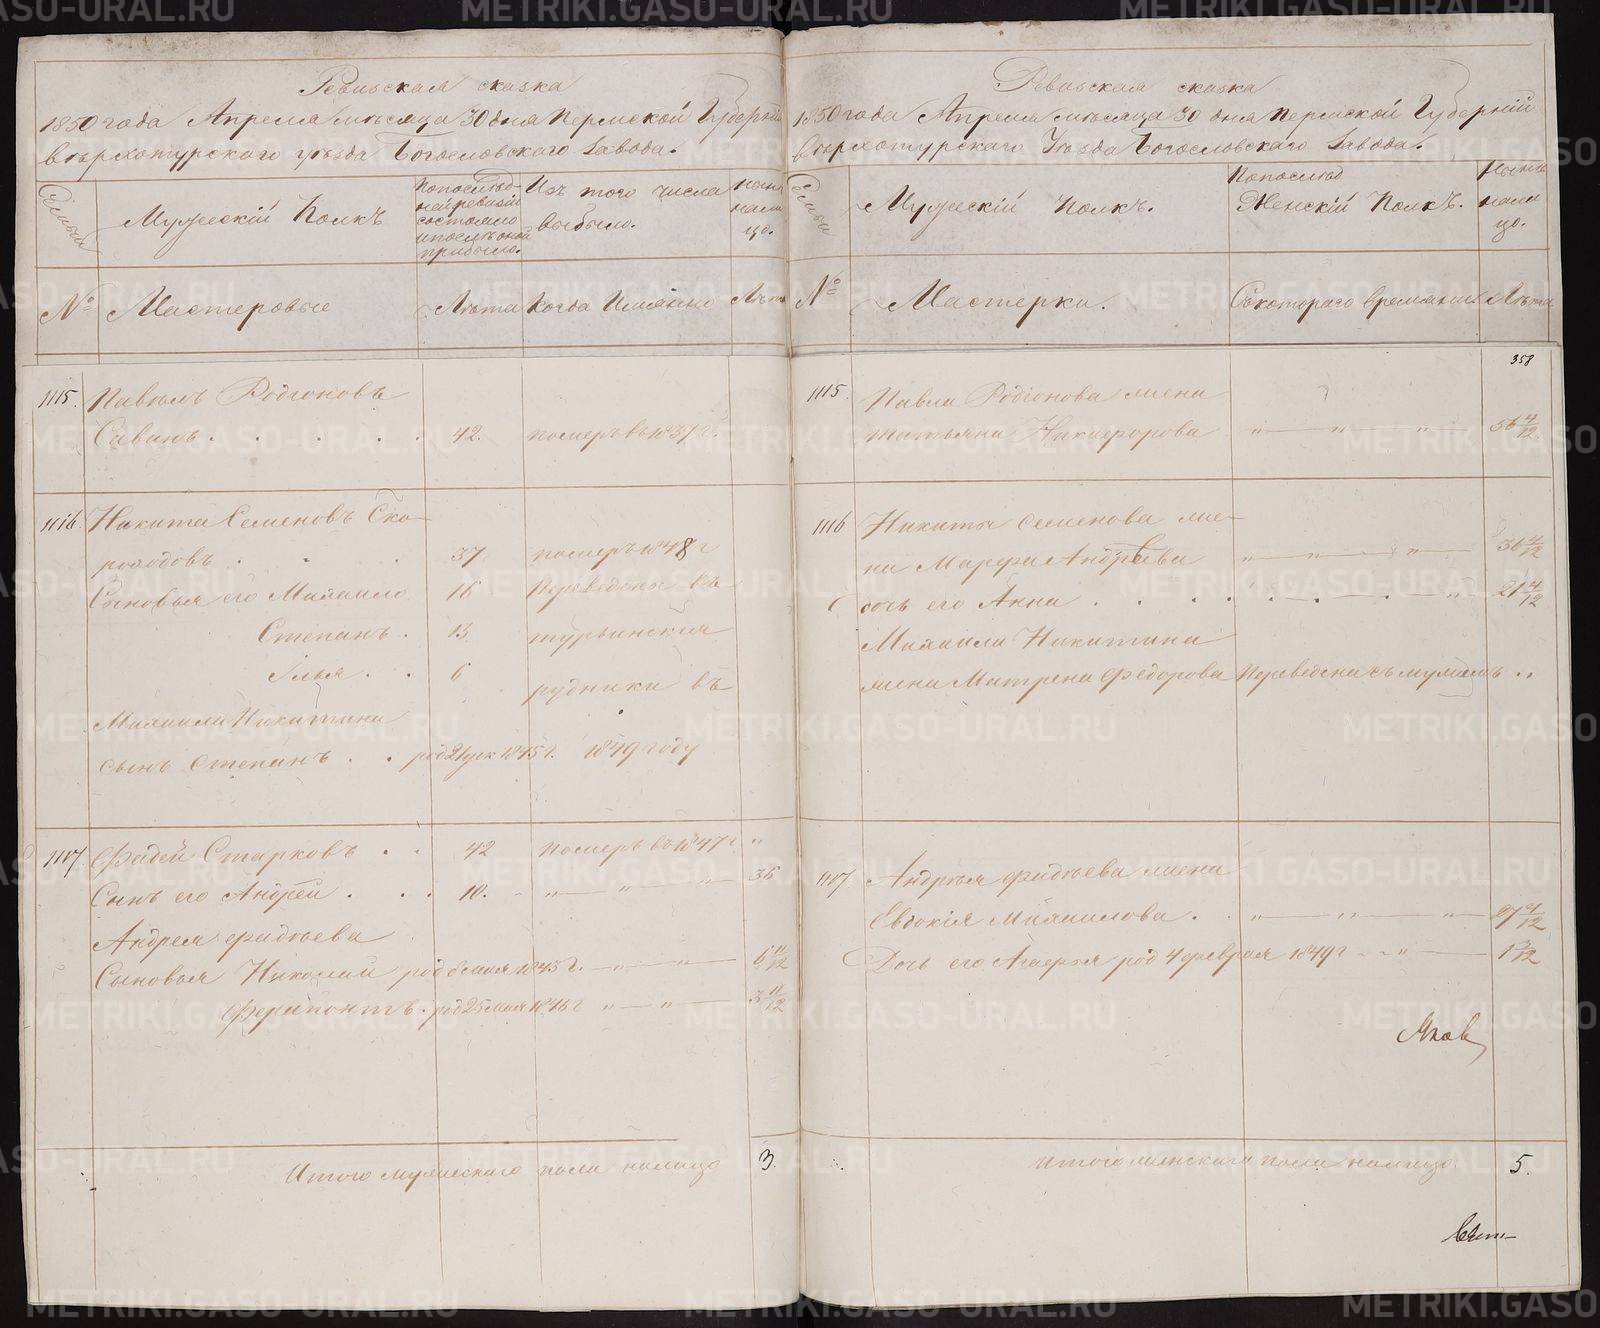 Ревизская сказка
1850 года Апреля месяца 30 дня Пермской Губерніи
Верхотурского уезда Богословского Завода.
Семьи
Мужескій Полкъ
По последней ревизіи состояло и после оной прибыло.
Изъ того числа выбыло.
Ныне на лицо.
№
Мастеровые
Лета
Когда Имянно
Лета
1115. Павелъ Родіоновъ
Саванъ . . . . . 42. померъ въ 1837 г.
1116. Никита Семеновъ Ско-
роходовъ . . . 37 померъ 1848 г
Сыновья его Михаило 16 Переведены въ
Степанъ . 13 турьинскія
Илья . . 6 рудники въ
Михаила Никитина
сынъ Степанъ . . род 1845 г. 1849 году
1117. Фадей Старковъ . . 42 померъ въ 1847 г. "
Сынъ его Андрей . . . 10. " " " 36
Андрея Фадеева
Сыновья Николай род мая 1843 г. " " 6 11/12
Ферапонтъ . род 25 мая 1846 г " " 3 11/12
Итого мужескаго пола налицо 3.
Ревизская сказка
1850 года Апреля месяца 30 дня Пермской Губерніи
Верхотурского Уезда Богословскаго Завода.
Семьи
Мужескій Полкъ.
По послед
Женскій Полкъ.
Ныне на лицо.
№
Мастерки.
Съ котораго времяни
Лета
358
1115. Павла Родіонова жена
татьяна Никифорова " " " 56 4/12
1116 Никиты Семенова же-
на Марфа Андреева " " " 56 4/12
дочь его Анна . . . . . . . " 21 4/12
Михаила Никитина
жена Матрена Федорова Переведена съ мужемъ "
1117 Андрея Фадеева жена
Евдокія Михаилова . . " " " 27 4/12
Дочь его Агафья род 4 февраля 1849 г " 1 2/12
Яков
Итого женскаго пола налицо 5.
METRIKI.GASO-URAL.RU